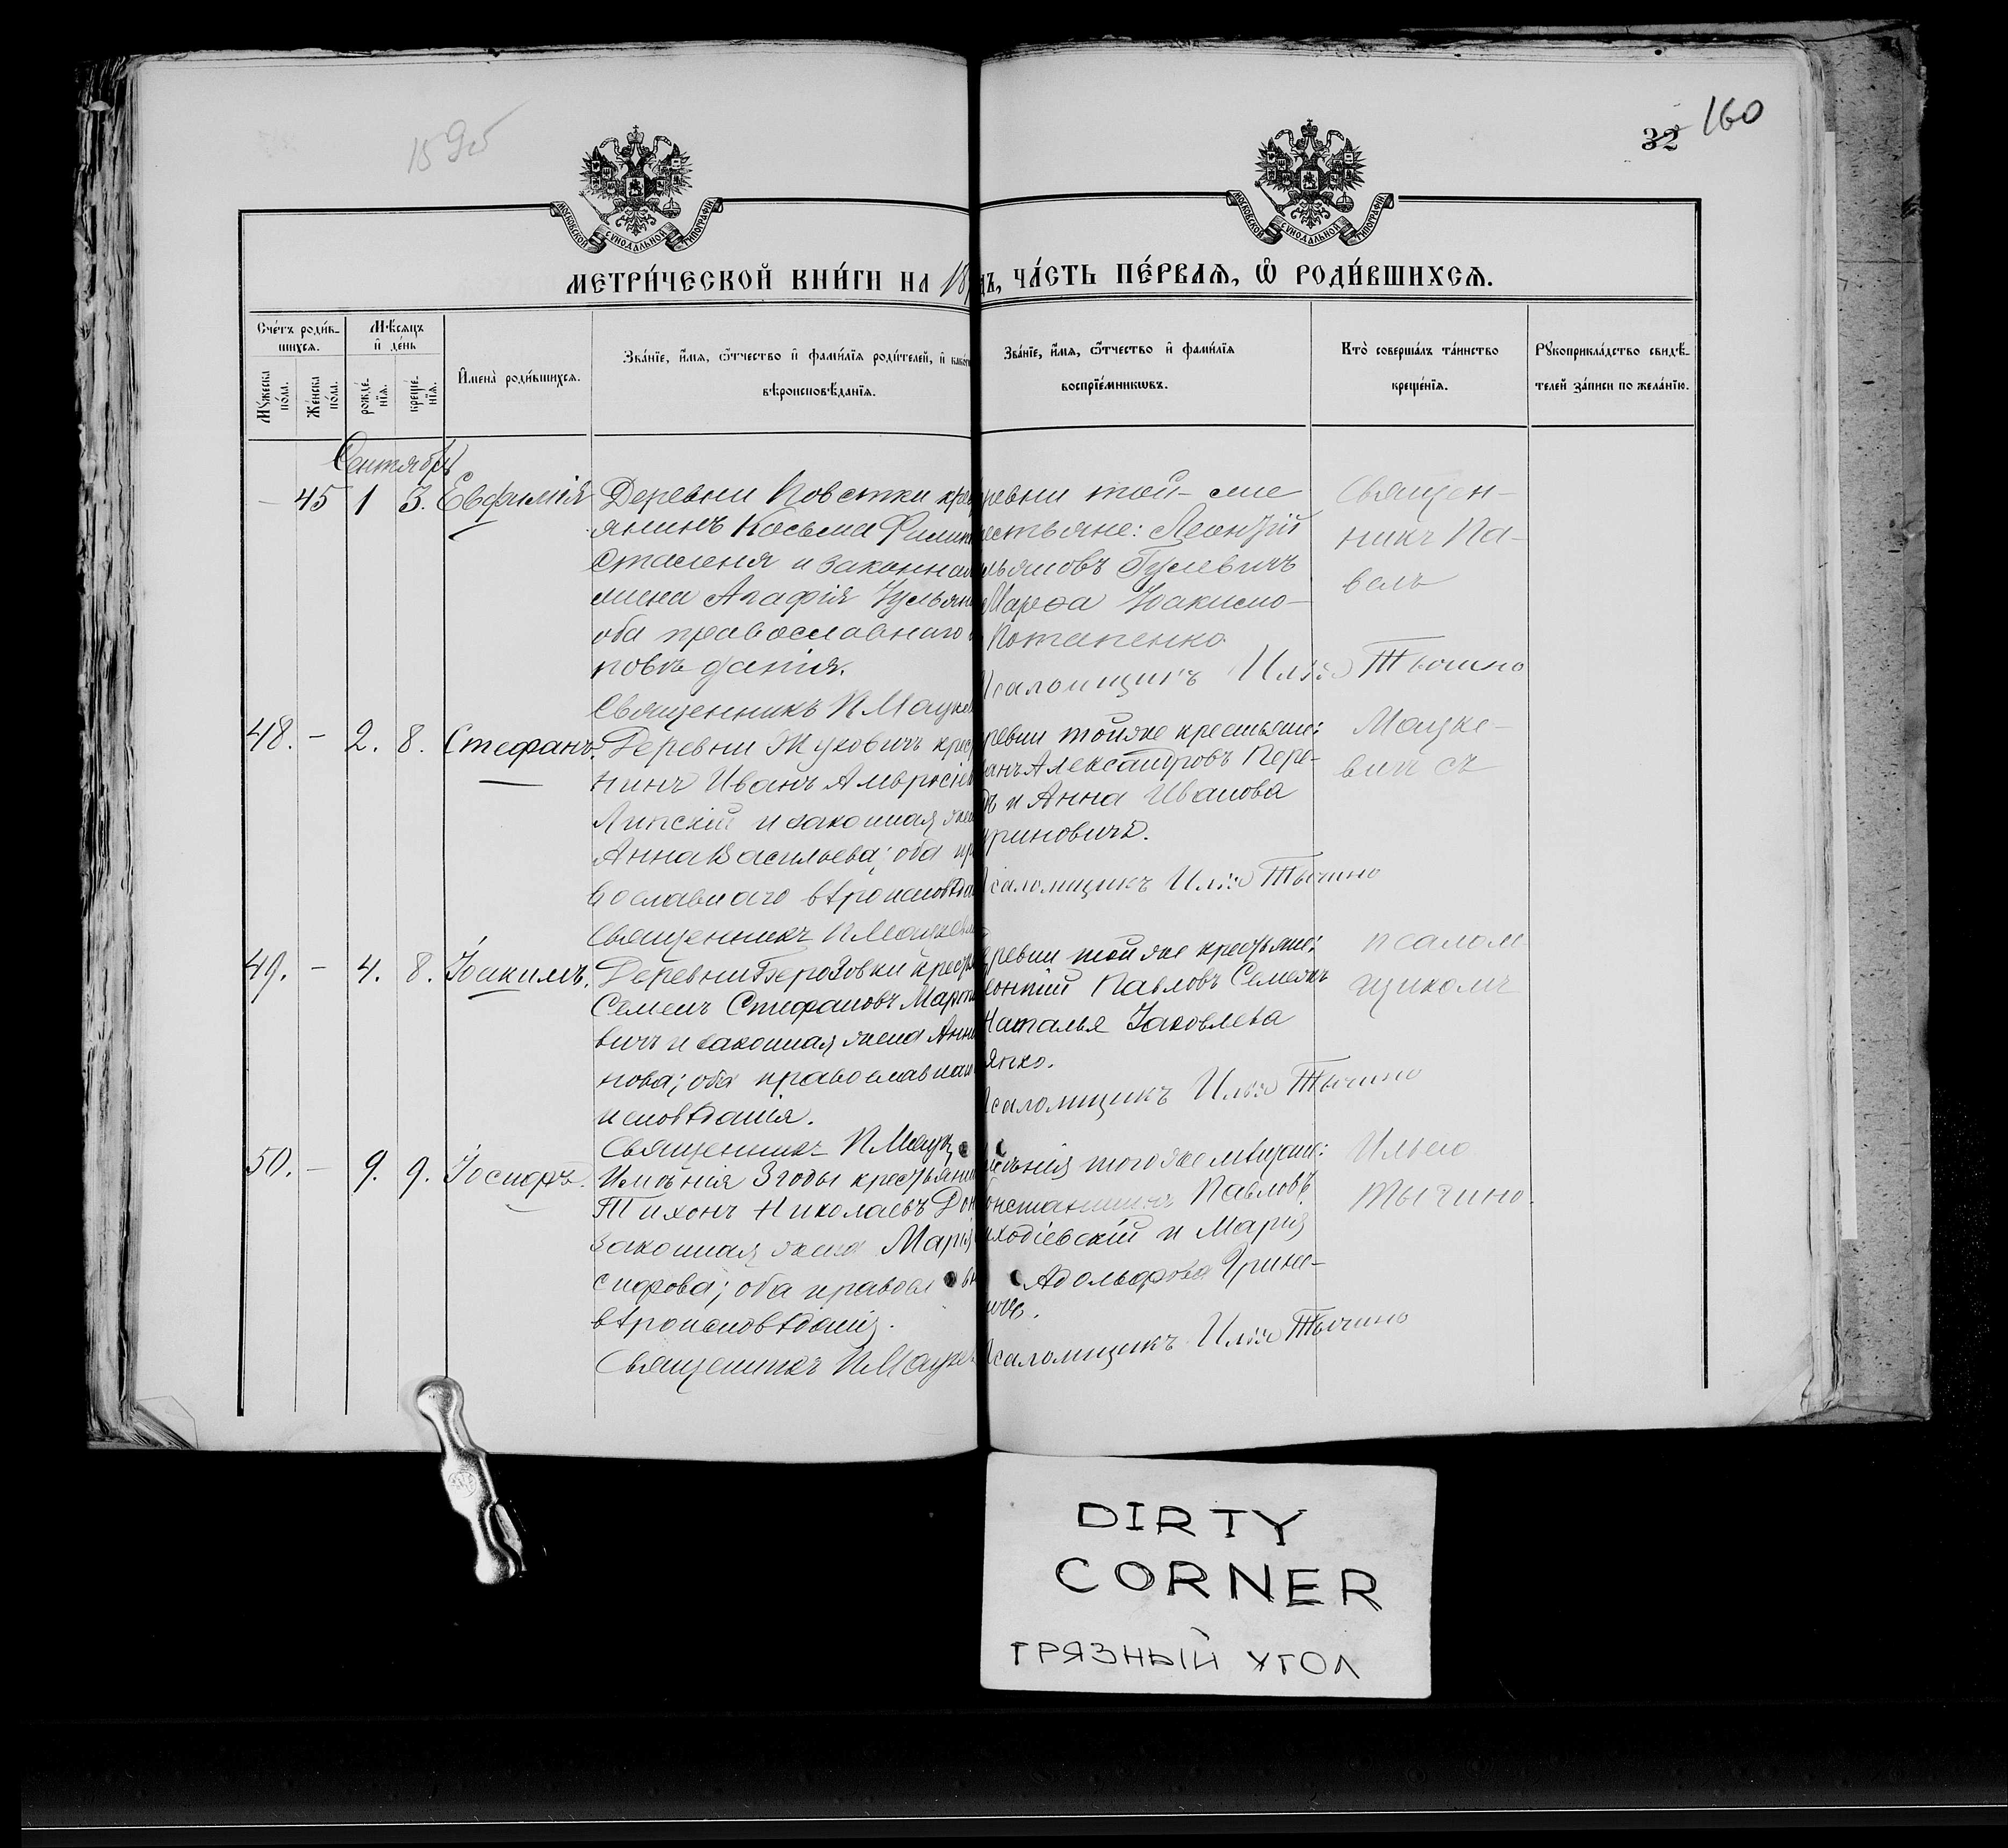 159об
32 160
МОСКОВСКОЙ СѴНОДАЛЬНОЙ ТИПОГРАФІИ
МОСКОВСКОЙ СѴНОДАЛЬНОЙ ТИПОГРАФІИ
МЕТРИ́ЧЕСКОЙ КНИ́ГИ НА 18
ЧА́СТЬ ПЕ́РВАѦ, Ѡ҆ РОДИ́ВШИХСѦ.
Сче́тъ роди́в-
шихсѧ.
Мꙋ́жеска по́ла.
Же́нска по́ла.
Мѣ́сѧцъ
и҆ де́нь
рожде́-
нїѧ.
креще́-
нїѧ.
И҆мена̀ роди́вшихсѧ.
Зва́нїе, и҆́мѧ, ѻ҆́тчество и҆ фами́лїѧ роди́телей, и҆
вѣроисповѣ́данїѧ.
Зва́нїе, и҆́мѧ, ѻ҆́тчество и҆ фами́лїѧ
воспрїе́мникѡвъ.
Кто̀ соверша́лъ та́инство
креще́нїѧ.
Рꙋкоприкла́дство свидѣ́-
телей за́писи по жела́нїю.
Сентябрь
– 45 1 3. Евфимія
Деревни Повстки кре
янинъ Косьма Филип
Сталеня и законная
жена Агафія Іульян
оба православнаго
повѣданія.
Священникъ П Мацке
ревни той-же
естьяне: Леонтій
льяновъ Гулевичъ
Марѳа Іоакимо-
Потапенко
саломщикъ Илія Тычино
Священ-
никъ Па-
велъ
48. – 2. 8. Стефанъ.
Деревни Жуковичъ крес
нинъ Иванъ Амвросіев
Липскій и законная же
Анна Васильева; оба пр
вославнаго вѣроисповѣда
Священникъ П Мацкев
ревни тойже крестьяне:
анъ Александровъ Пере-
и Анна Иванова
уриновичъ.
саломщикъ Илія Тычино
Мацке-
вичъ съ
49. – 4. 8. Іоакимъ.
Деревни Березовки крестья
Семенъ Стефановъ Марти
вичъ и законная жена Анна
нова; оба православнаго
исповѣданія.
Священникъ П Мацк
ревни той же крестьяне:
еонтій Павловъ Семенъ
Наталья Іаковлева
Янко.
саломщикъ Илія Тычино
псалом
щикомъ
50. – 9. 9. Іосифъ.
Имѣнія Згоды крестьяни
Тихонъ Николаевъ Дон
законная жена Марія
сифова; оба правосл
вѣроисповѣданія.
Священникъ П Мацкев
мѣнія того же мѣщане:
онстантинъ Павловъ
иходіевскій и Марія
Адольфова Грине-
ичъ.
саломщикъ Илія Тычино
Ильею
Тычино.
DIRTY
CORNER
ГРЯЗНЫЙ УГОЛ